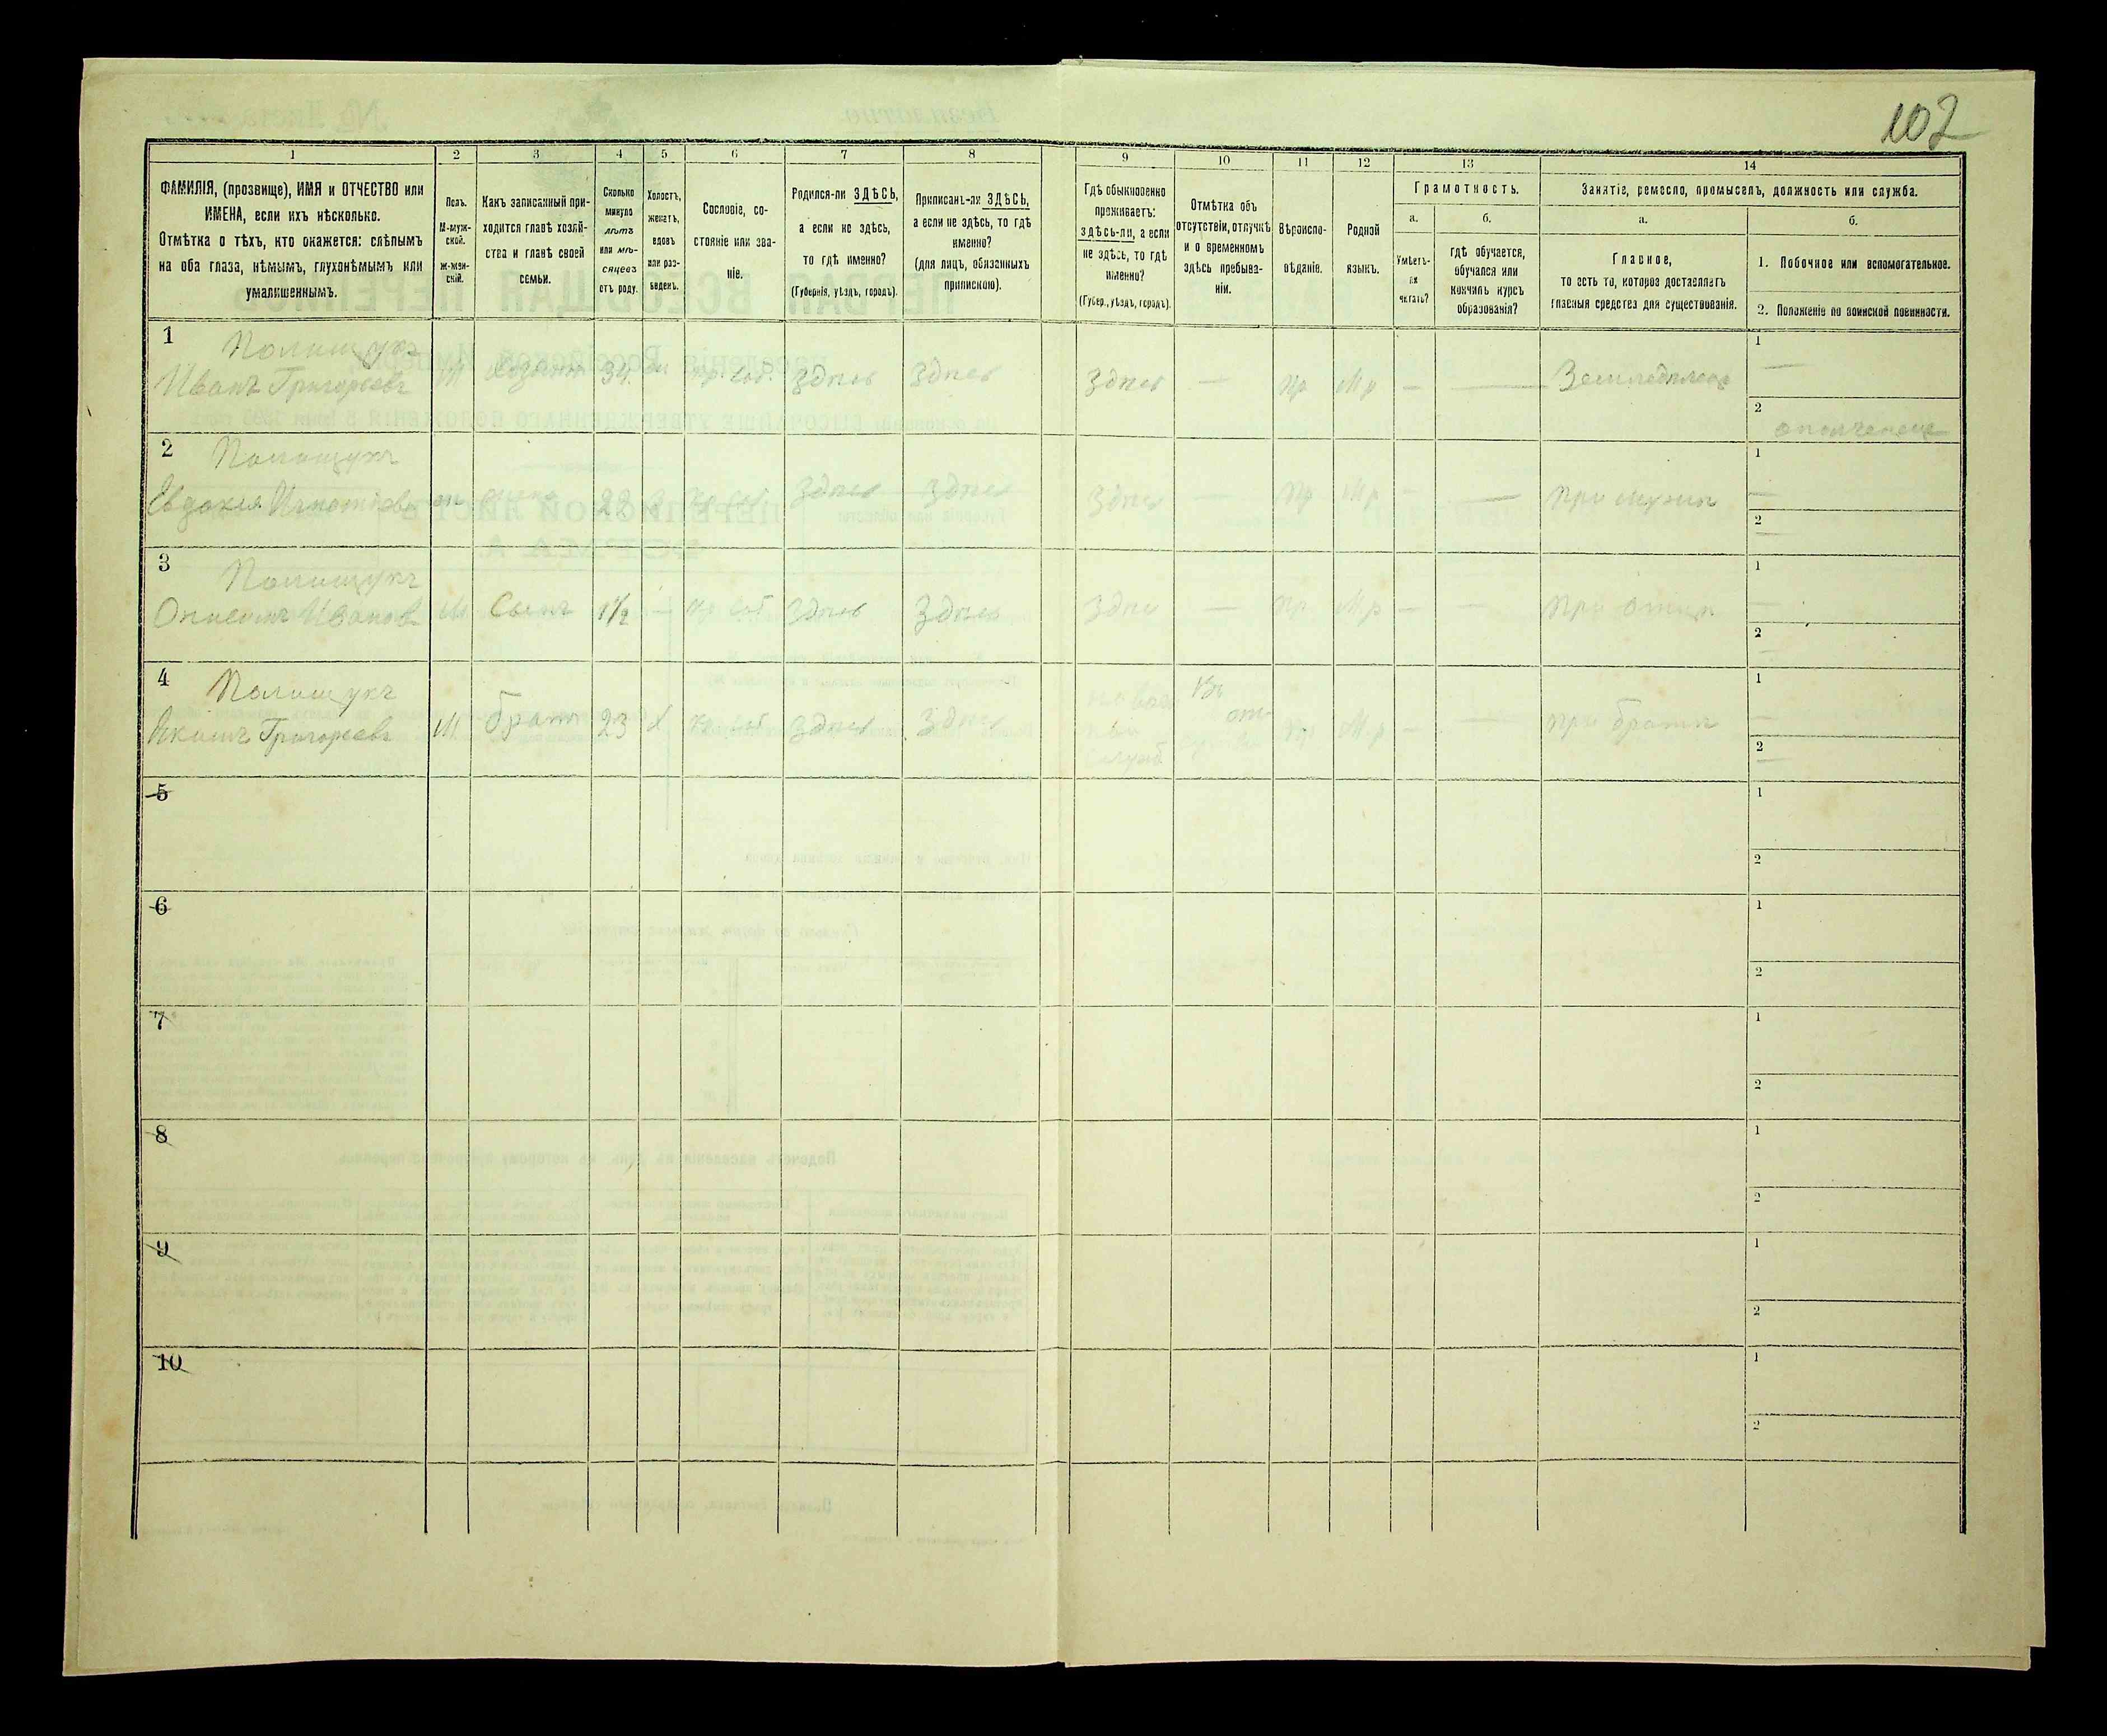 102
1
2
3
4
5
6
7
8
9
10
11
12
13
14
ФАМИЛІЯ, (прозвище), ИМЯ и ОТЧЕСТВО или
ИМЕНА, если ихъ нѣсколько.
Отмѣтка о тѣхъ, кто окажется: слѣпымъ
на оба глаза, нѣмымъ, глухонѣмымъ или
умалишеннымъ.
Полъ.
М-муж-
ской.
ж-жен-
скій.
Какъ записанный при-
ходится главѣ хозяй-
ства и главѣ своей
семьи.
Сколько
минуло
лѣтъ
или мѣ-
сяцевъ
отъ роду.
Холостъ,
женатъ,
вдовъ
или раз-
веденъ.
Сословіе, со-
стояніе или зва-
ніе.
Родился-ли ЗДѢСЬ,
а если не здѣсь,
то гдѣ именно?
(Губернія, уѣздъ, городъ).
Приписанъ-ли ЗДѢСЬ,
а если не здѣсь, то гдѣ
именно?
(для лицъ, обязанныхъ
припискою).
Гдѣ обыкновенно
проживаетъ:
здѣсь-ли, а если
не здѣсь, то гдѣ
именно?
(Губер., уѣздъ, городъ).
Отмѣтка объ
отсутствіи, отлучкѣ
и о временномъ
здѣсь пребыва-
ніи.
Вѣроиспо-
вѣданіе.
Родной
языкъ.
Грамотность.
а.
Умѣетъ-
ли
читать?
б.
гдѣ обучается,
обучался или
кончилъ курсъ
образованія?
Занятіе, ремесло, промыселъ, должность или служба.
а.
Главное,
то есть то, которое доставляетъ
главныя средства для существованія.
б.
1. Побочное или вспомогательное.
2. Положеніе по воинской повинности.
1
Полищукъ
Иванъ Григорьевъ М Хозяинъ 34 кр. соб. Здѣсь Здѣсь Здѣсь — Пр Мр — — Земледѣлецъ
1 —
2 ополченецъ
2
Полищукъ
Евдокия Игнатіева жена 22 кр. соб. Здѣсь Здѣсь Здѣсь — Пр Мр — — При мужѣ
1 —
2 —
3
Полищукъ
Онисимъ Ивановъ М Сынъ 1½ — кр соб Здѣсь Здѣсь Здѣсь — Пр Мр — — При отцѣ
1 —
2 —
4
Полищукъ
Якимъ Григорьевъ М братъ 23 Х кр. соб Здѣсь Здѣсь Пр Мр — — при братѣ
1 —
2 —
5
1
2
6
1
2
7
1
2
8
1
2
9
1
2
10
1
2